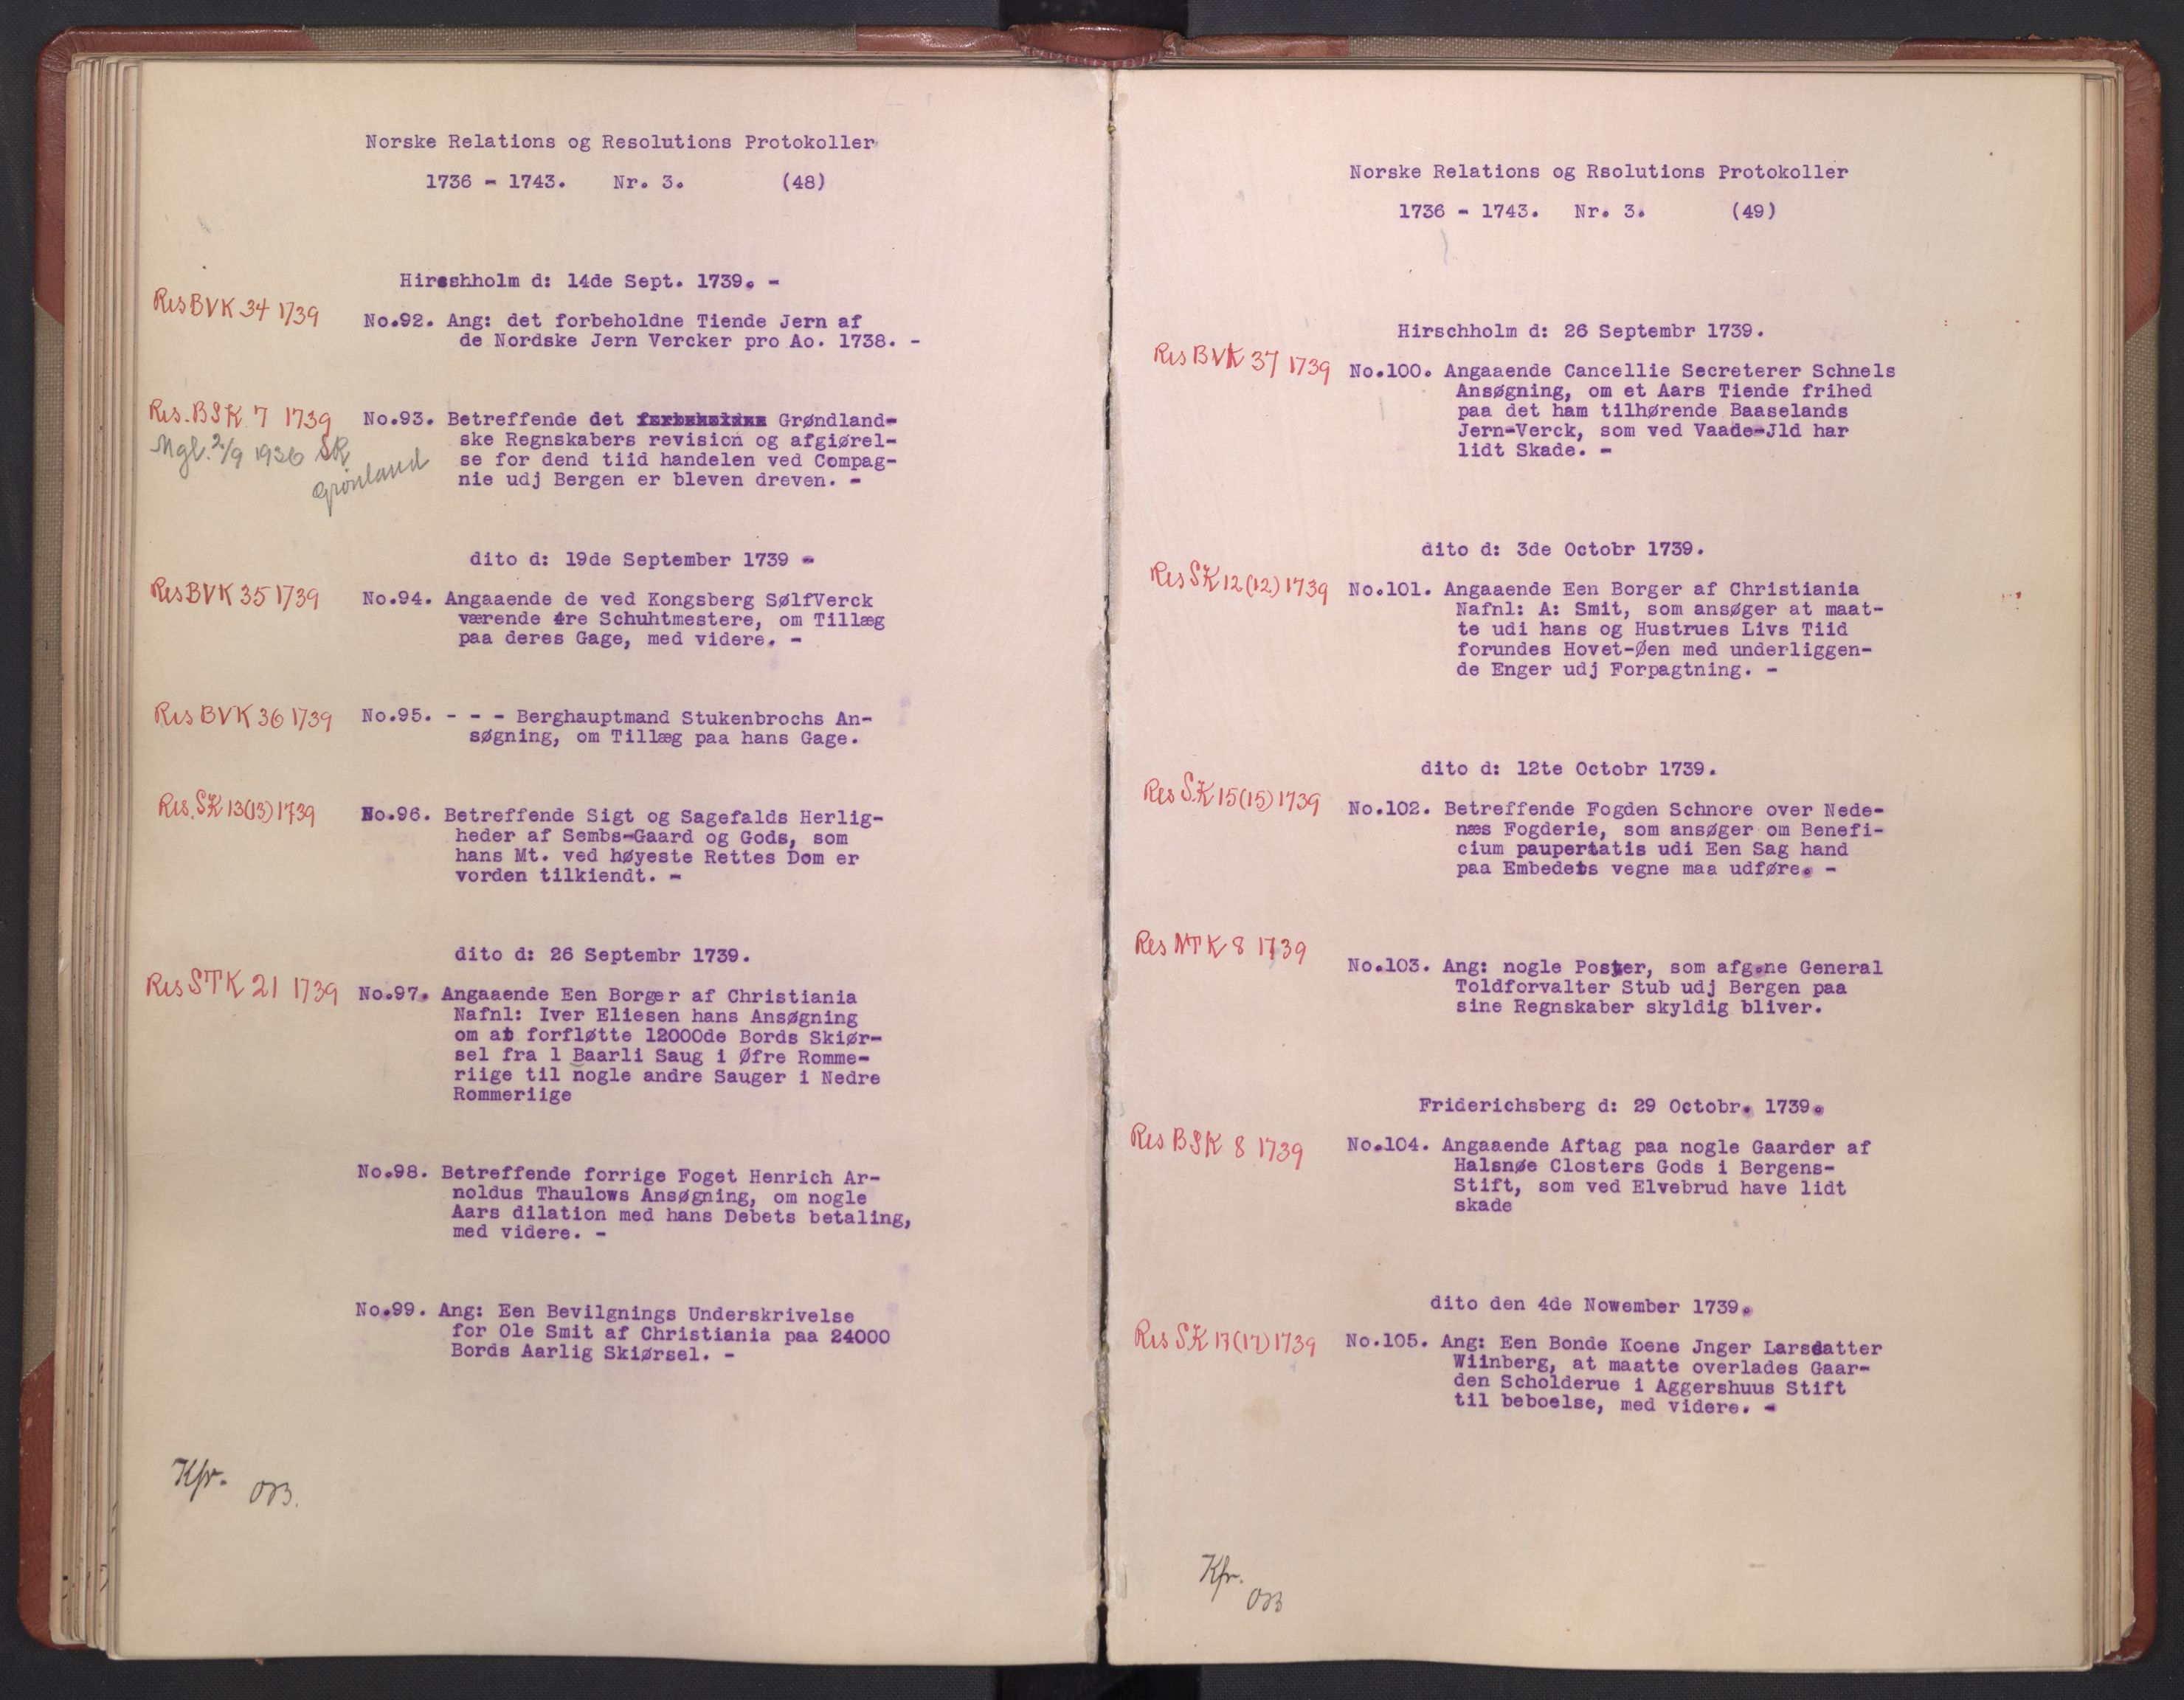 Norske Relations og Resolutions Protokoller
1736 - 1743. Nr. 3. (48)
Hirschholm d: 14de Sept. 1739. -
Res BVK 34 1739
No.92. Ang: det forbeholdne Tiende Jern af
de Nordske Jern Vercker pro Ao. 1738. -
Res. BSK 7 1739
Mgl. 2/9 1936 SR
Grönland
No.93. Betreffende det Grøndland-
ske Regnskabers revision og afgiørel-
se for dend tiid handelen ved Compag-
nie udj Bergen er bleven dreven. -
dito d: 19de September 1739 -
Res BVK 35 1739
No.94. Angaaende de ved Kongsberg SølfVerck
værende 4re Schuhtmestere, om Tillæg
paa deres Gage, med videre. -
Res BVK 36 1739
No.95. - - - Berghauptmand Stukenbrochs An-
søgning, om Tillæg paa hans Gage.
Res. SK 13(13) 1739
No.96. Betreffende Sigt og Sagefalds Herlig-
heder af Sembs-Gaard og Gods, som
hans Mt. ved høyeste Rettes Dom er
vorden tilkiendt. -
dito d: 26 Septembr 1739.
Res STK 21 1739
No.97. Angaaende Een Borger af Christiania
Nafnl: Iver Eliesen hans Ansøgning
om at forfløtte 12000de Bords Skiør-
sel fra 1 Baarli Saug i Øfre Romme-
riige til nogle andre Sauger i Nedre
Rommeriige
No.98. Betreffende forrige Foget Henrich Ar-
noldus Thaulows Ansøgning, om nogle
Aars dilation med hans Debets betaling,
med videre. -
No.99. Ang: Een Bevilgnings Underskrivelse
for Ole Smit af Christiania paa 24000
Bords Aarlig Skiørsel. -
Kfr.
Norske Relations og Rsolutions Protokoller
1736 - 1743. Nr. 3. (49)
Hirschholm d: 26 Septembr 1739.
Res BVK 37 1739
No.100. Angaaende Cancellie Secreterer Schnels
Ansøgning, om et Aars Tiende frihed
paa det ham tilhørende Baaselands
Jern-Verck, som ved Vaade-Jld har
lidt Skade. -
dito d: 3de Octobr 1739.
Res SK 12(12) 1739
No.101. Angaaende Een Borger af Christiania
Nafnl: A: Smit, som ansøger at maat-
te udi hans og Hustrues Livs Tiid
forundes Hovet-Øen med underliggen-
de Enger udj Forpagtning. -
dito d: 12te Octobr 1739.
Res SK 15(15) 1739
No.102. Betreffende Fogden Schnore over Nede-
næs Fogderie, som ansøger om Benefi-
cium paupertatis udi Een Sag hand
paa Embedets vegne maa udføre. -
Res NTK 8 1739
No.103. Ang: nogle Poster, som afgane General
Toldforvalter Stub udj Bergen paa
sine Regnskaber skyldig bliver.
Friderichsberg d: 29 Octobr. 1739.
Res BSK 8 1739
No.104. Angaaende Aftag paa nogle Gaarder af
Halsnøe Closters Gods i Bergens-
Stift, som ved Elvebrud have lidt
skade
dito den 4de Nowember 1739.
Res SK 17(17) 1739
No.105. Ang: Een Bonde Koene Jnger Larsdatter
Wiinberg, at maatte overlades Gaar-
den Scholderue i Aggershuus Stift
til beboelse, med videre. -
Kfr.